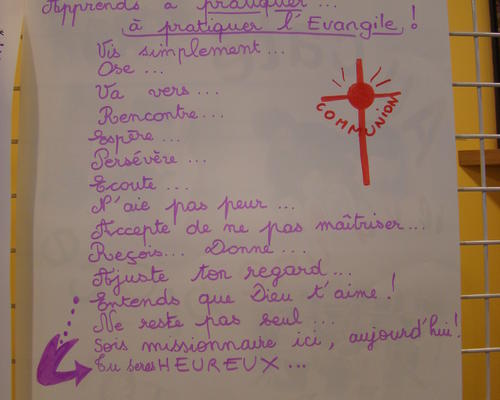 Apprends à pratiquer ...
à pratiquer l'Evangile, !
Vis simplement ...
Ose ...
Va vers ...
Rencontre ...
Espère ...
Persévère ...
Ecoute ...
N'aie pas peur ...
Accepte de ne pas maîtriser ...
Reçois ... Donne ...
Ajuste ton regard ...
Entends que Dieu t'aime !
Ne reste pas seul ...
Sois missionnaire ici, aujourd'hui !
Tu seras HEUREUX ...
COMMUNION